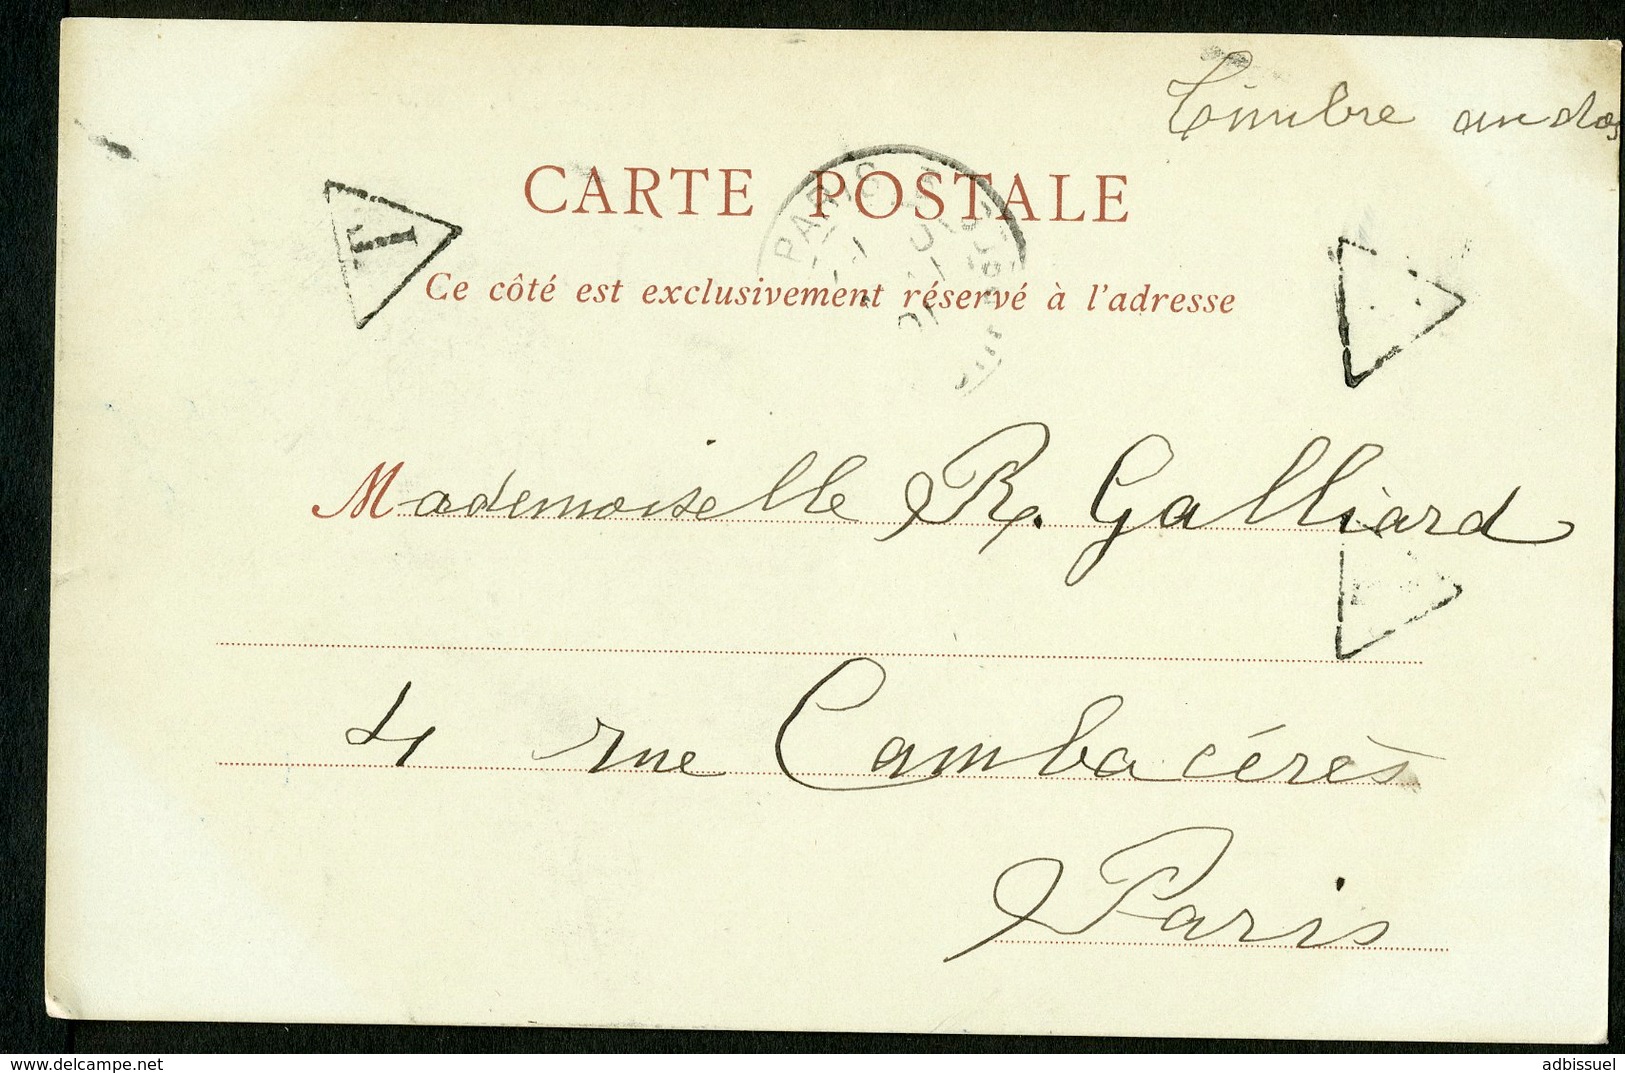 Timbre au dos
CARTE POSTALE
PARIS
Ce côté est exclusivement réservé à l'adresse
T
Mademoiselle R. Galliard
4 rue Cambacérès
Paris
delcampe.net
adbissuel